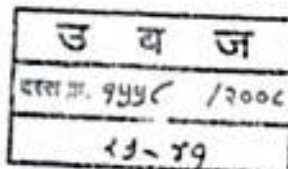 उ व ज
दस्त क्र. १५५८ /२००८
२३-४९